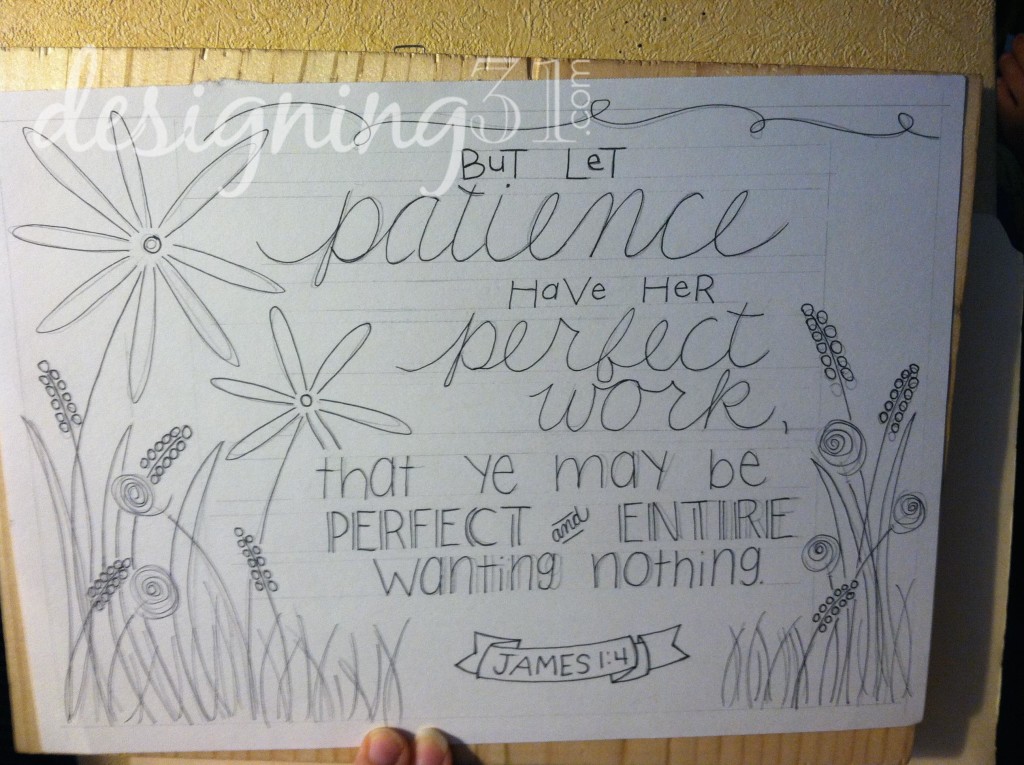 designing31.com
BuT LeT
patience
HaVe HeR
perfect
work,
that ye may be
PERFECT and ENTIRE
wanting nothing.
JAMES 1:4